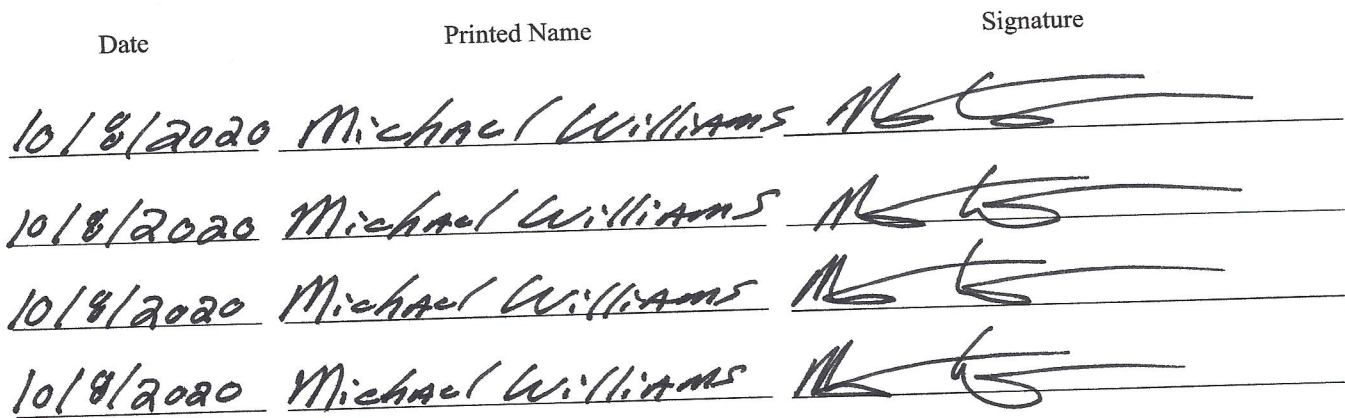 Date Printed Name Signature
10/8/2020 Michael Williams
10/8/2020 Michael Williams
10/8/2020 Michael Williams
10/8/2020 Michael Williams